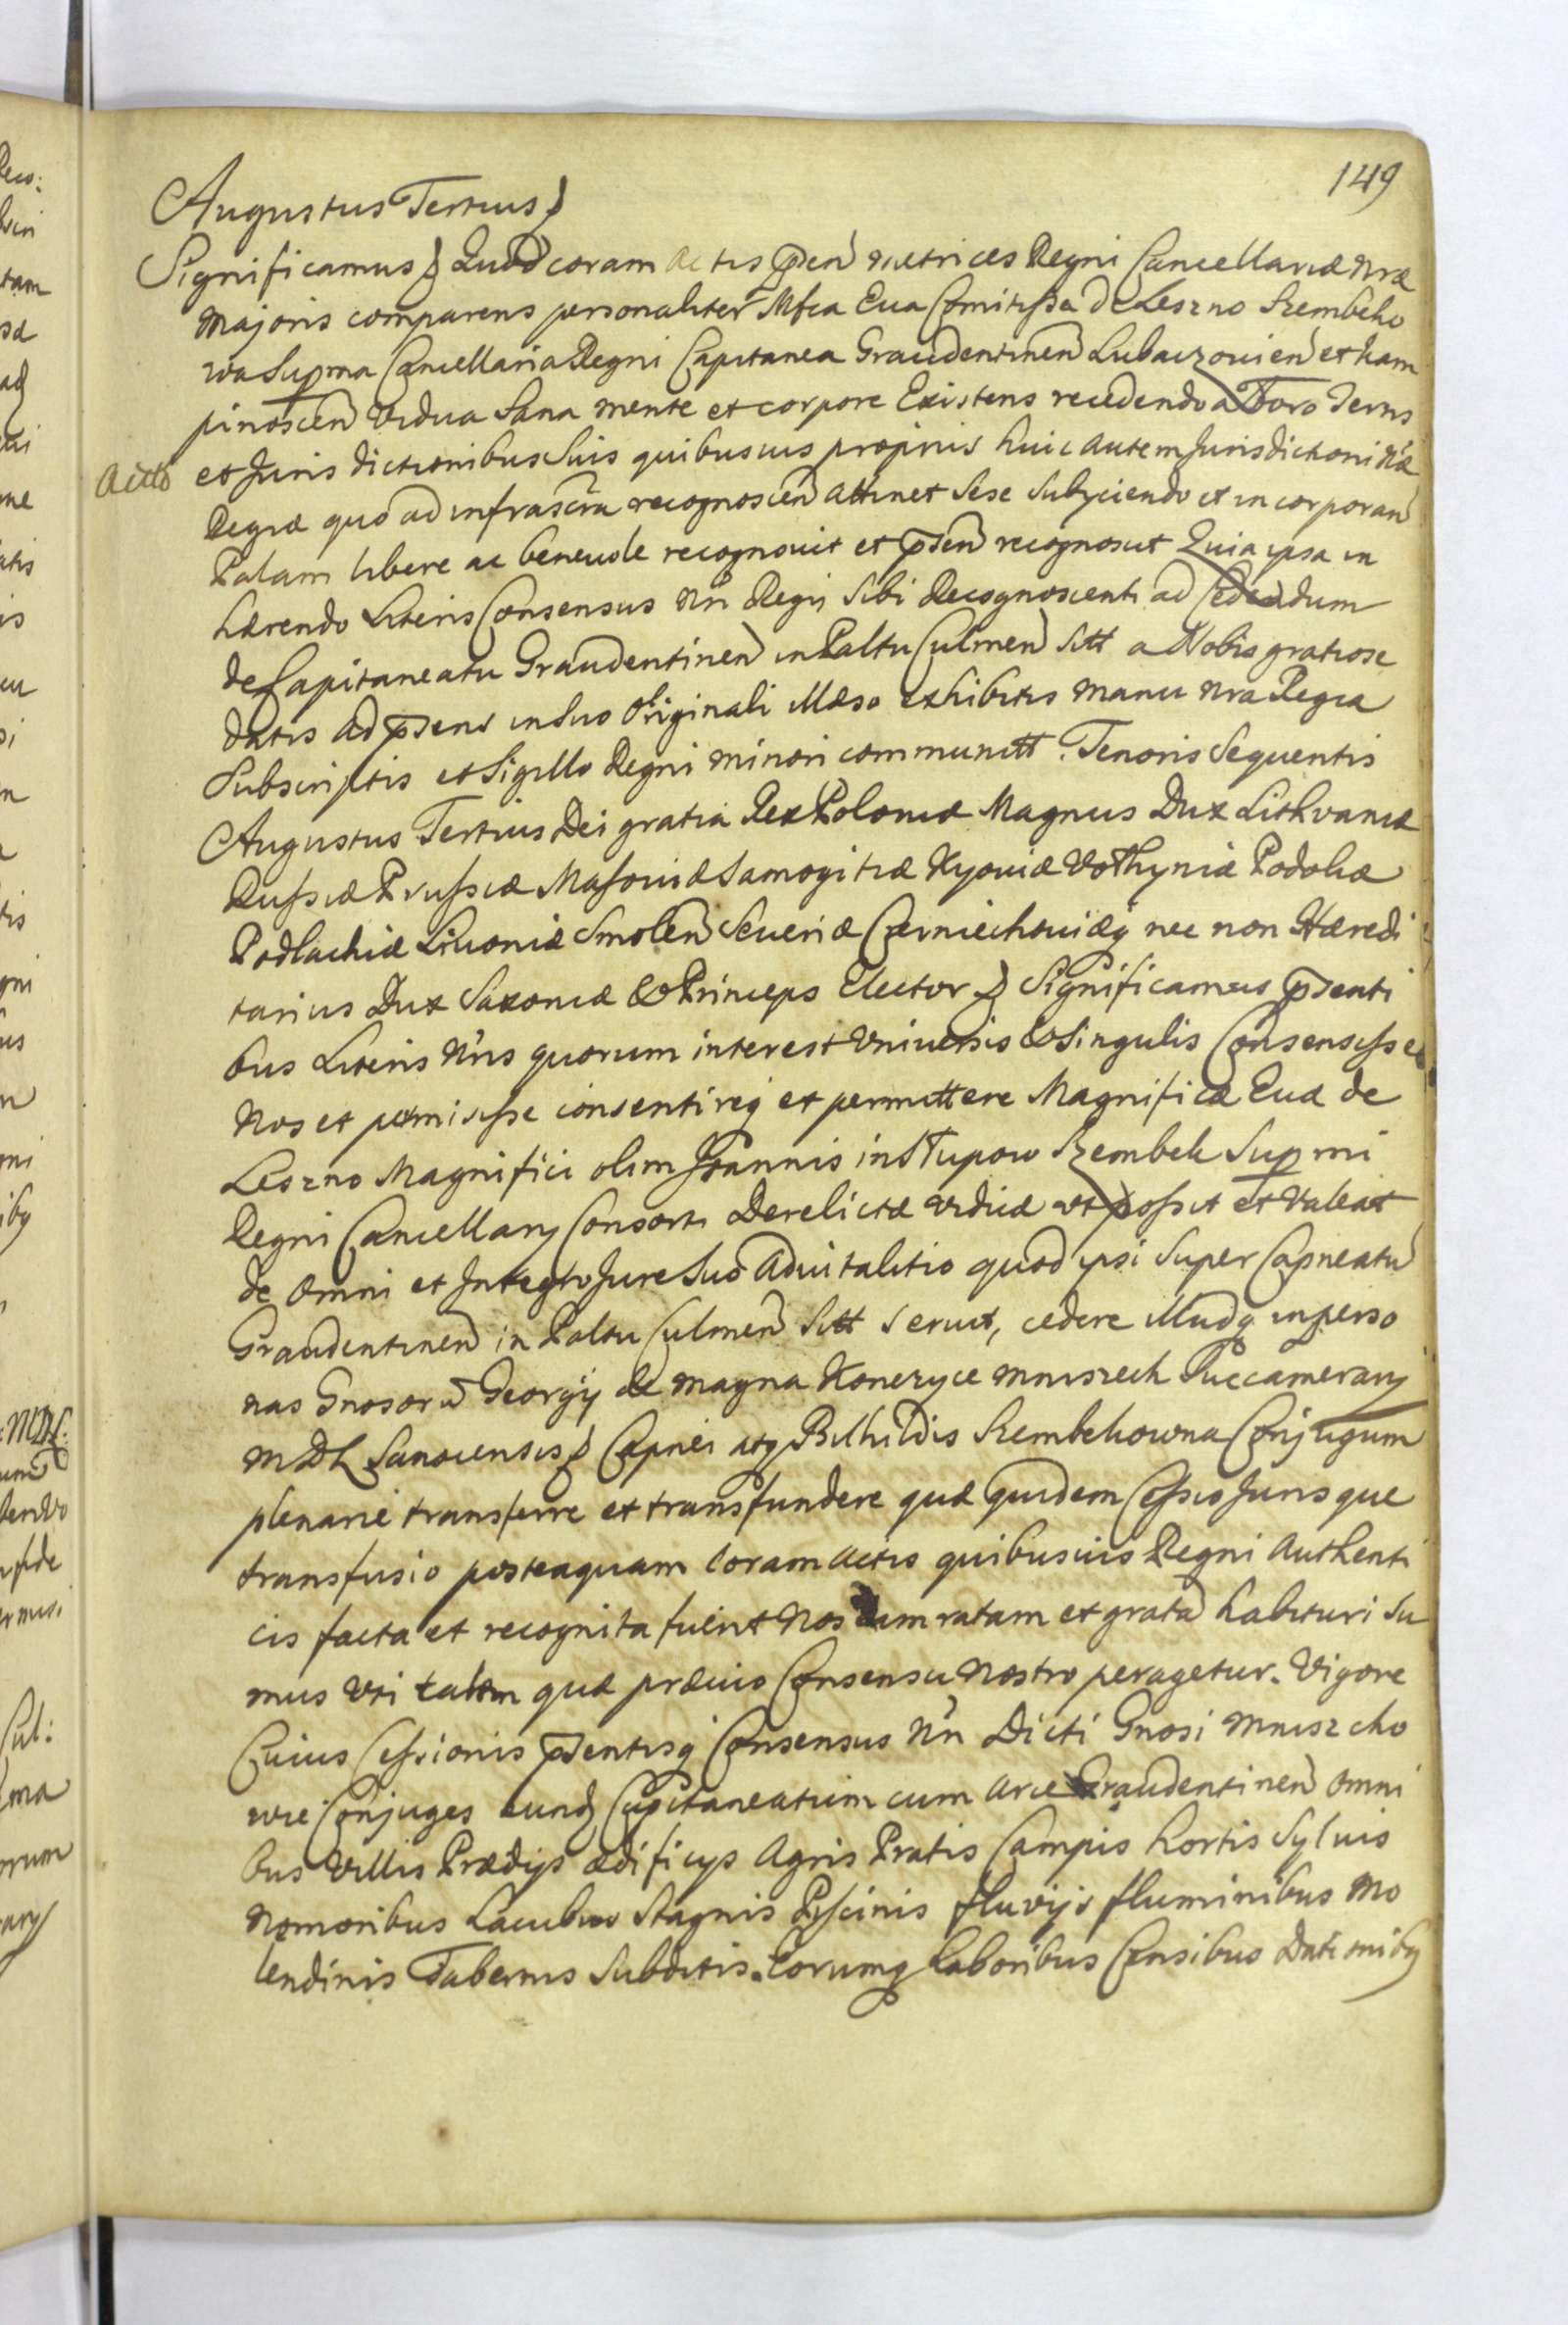 149
Augustus Tertius
Significamus Quod coram Actis pñen metrices Regni Cancellariæ Nræ
Majoris comparens personaliter Mfca Eua Comitissa de Leszno Szembeko
wa Suprma Cancellaria Regni Capitanea Graudentinen Lubaczouien et kam
pinoscen Vidua Sana mente et corpore Existens recedendo a Foro Terris
et Juris dictionibus Suis quibusuis proprijs huic autem Jurisdictioni Nræ
Regiæ quo ad infrascra recognoscen attinet Sese Subijciendo et incorporan
Palam libere ac beneuole recognouit et pñsen recognoscit Quia ipsa in
hærendo Literis Consensus Nri Regij Sibi Recognoscenti ad Cedendum
de Capitaneatu Graudentinen in Paltu Culmen Sitt a Nobis gratiose
datis ad pñsens in Suo Originali Illæso exhibitis manu Nra Regia
Subscriptis et Sigillo Regni minori communitt. Tenoris Sequentis
Augustus Tertius Dei gratia Rex Poloniæ Magnus Dux Lithvaniæ
Russiæ Prussiæ Masouiæ Samogitiæ Kyouiæ Volhyniæ Podoliæ
Podlachiæ Liuoniæ Smolen Seueriæ Czerniechouiæq nec non Hæredi
tarius Dux Saxoniæ & Princeps Elector Significamus pñsenti
bus Literis Nris quorum interest Vniuersis & Singulis Consensisse
Nos et permisisse consentireq et permittere Magnificæ Euæ de
Leszno Magnifici olim Joannis in Słupow Szembek Supmi
Regni Cancellarij Consorti Derelictæ Viduæ vt possit et Valeat
de Omni et Integro Jure Suo Aduitalitio quod ipsi Super Capneatu
Graudentinen in Paltu Culmen Sitt Seruit, cedere Illudq in perso
nas Gnosorũ Georgij de magna Konczyce Mniszech Succamerarij
MDL Sanocensis Capnei atq Bilhildis Szembekowna Conjugum
plenarie transferre et transfundere quæ quidem Cessio Jurisque
transfusio posteaquam Coram Actis quibusuis Regni Authenti
cis facta et recognita fuerit Nos eam ratam et gratã habituri Su
mus Vti talem quæ præuio Consensu Nostro peragetur. Vigore
Cuius Cessionis pñsentisq Consensus Nri Dicti Gnosi Mniszcho
wie Conjuges eund Capitaneatum cum Arce Graudentinen omni
bus Villis Prædijs ædificijs Agris Pratis Campis hortis Syluis
Nemoribus Lacubus Stagnis Piscinis fluvijs fluminibus Mo
lendinis Tabernis Subditis. Eorumq Laboribus Censibus Dationibq